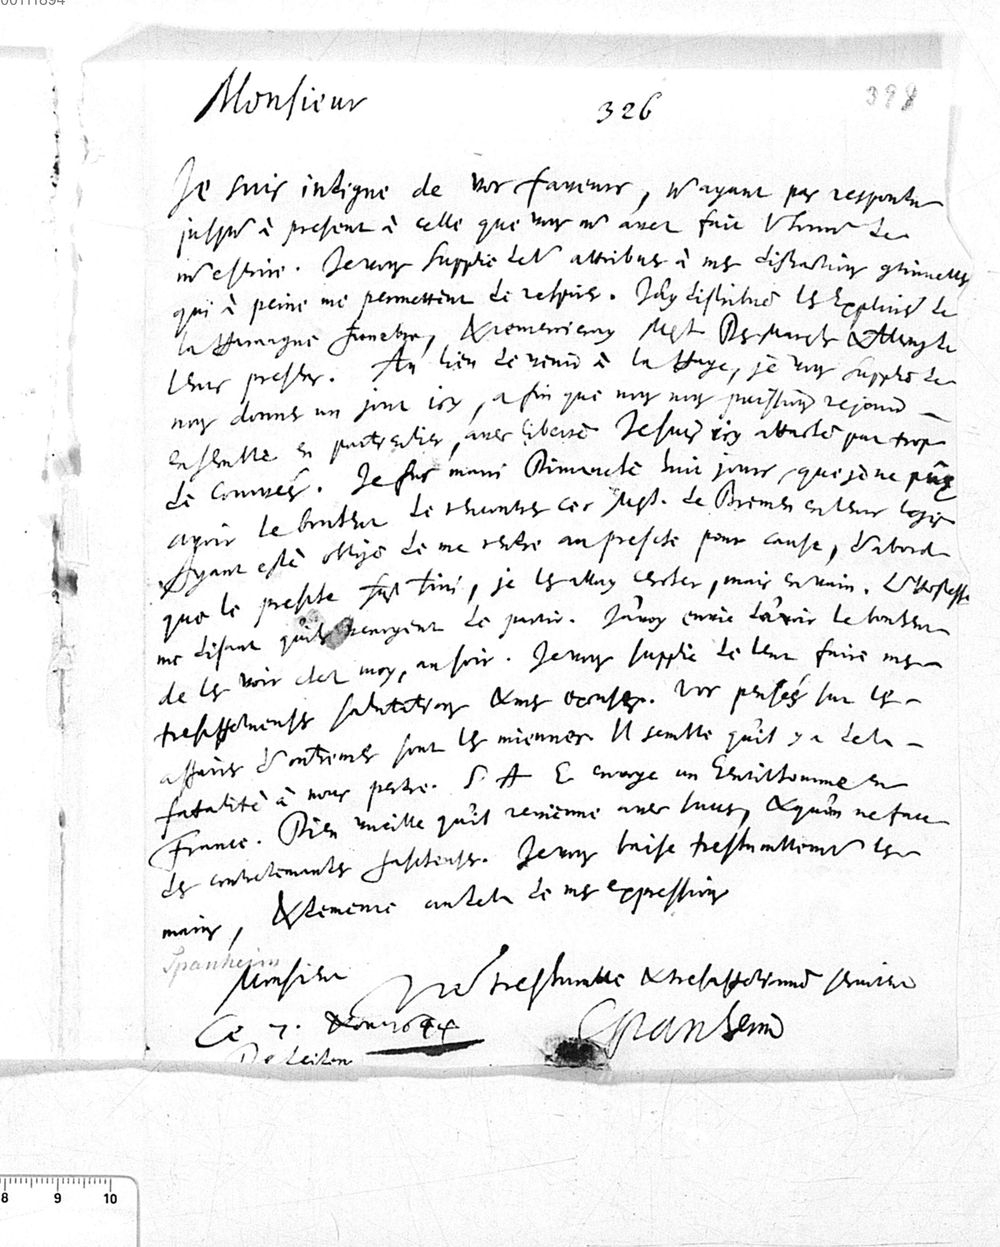 00111894
Monsieur 326 398
Je suis indigne de vos faveurs, n'ayant pas respondu
jusqu'à present à celle que vous m'avez fait l'honneur de
m'escrire. Je vous supplie de l' attribuer à mes distractions
qui à peine me permettent de respirer. J'ay distribué les Exemplaires de
la Harangue funebre, & remercieray Mess.
leurs presens. Au lieu de venir à la Haye, je vous supplie de
nous donner un jour icy, afin que nous nous puissions rejouir
ensemble en particulier, avec liberté Je suis icy attaché par trop
de courvées. Je fus marri Dimanche huit jours, que je ne pûs
avoir le bonheur de rencontrer ces Mess. de Bremen en leur logis
Ayant esté obligé de me rendre au presche pour cause, d'abord
que le presche fust fini, je les allay chercher, mais en vain. L'Hostesse
me disant qu'ils venoyent de partir. J'avoy envie d'avoir le bonheur
de les voir chez moy, au soir. Je vous supplie de leur faire mes
salutations & mes excuses. Vos pensées sur les
affaires d' sont les miennes Il semble qu'il y a de la
fatalité à nous perdre. S. A. E. envoye un Gentilhomme en
France. Dieu vueille qu'il revienne avec succes, & qu'on ne face
des Je vous baise treshumblement les
mains, & demeure au dela de mes expressions
Spanheim
Monsieur
Vre treshumble & tresaffectionné serviteur
Ce 7.
De Leiden
Spanheim
8 9 10